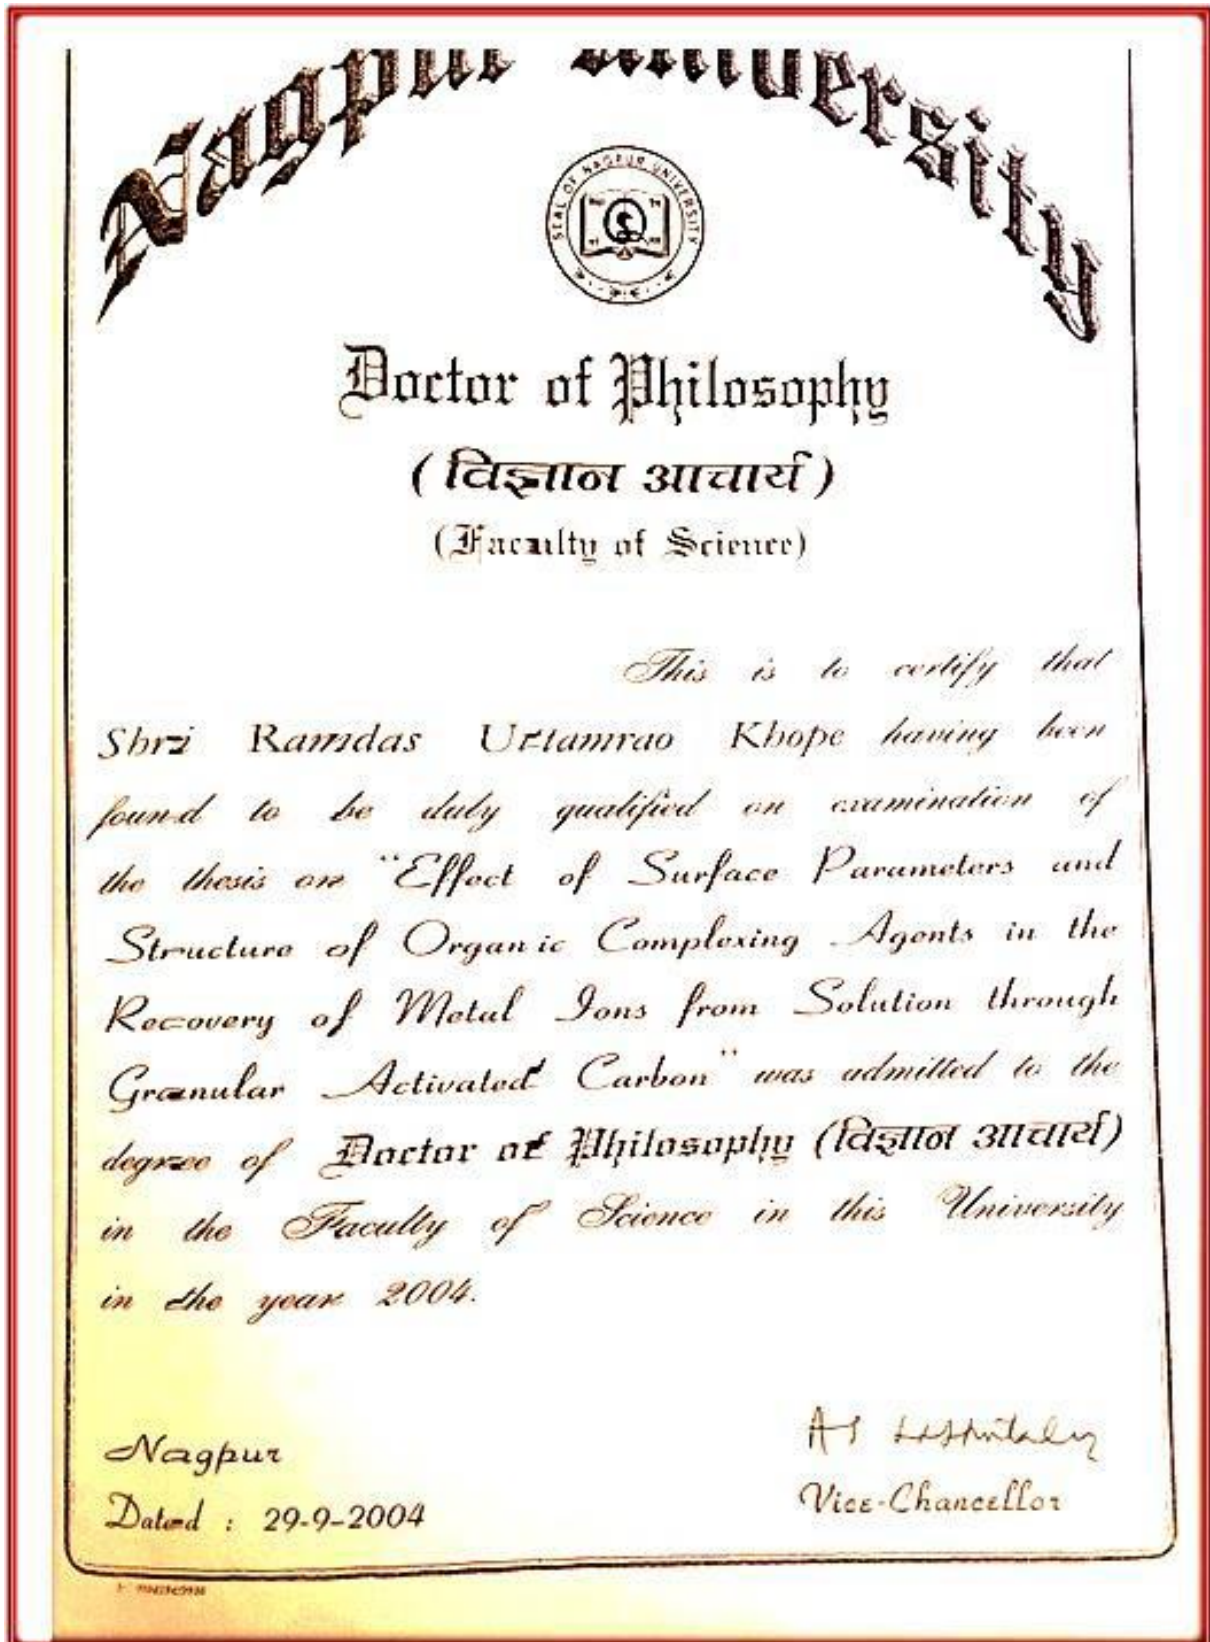 Nagpur University
SEAL OF NAGPUR UNIVERSITY
Doctor of Philosophy
(विज्ञान आचार्य)
(Faculty of Science)
This is to certify that
Shri Ramdas Uttamrao Khope having been
found to be duly qualified on examination of
the thesis on "Effect of Surface Parameters and
Structure of Organic Complexing Agents in the
Recovery of Metal Ions from Solution through
Granular Activated Carbon" was admitted to the
degree of Doctor of Philosophy (विज्ञान आचार्य)
in the Faculty of Science in this University
in the year 2004.
Nagpur
Dated : 29-9-2004
Vice-Chancellor